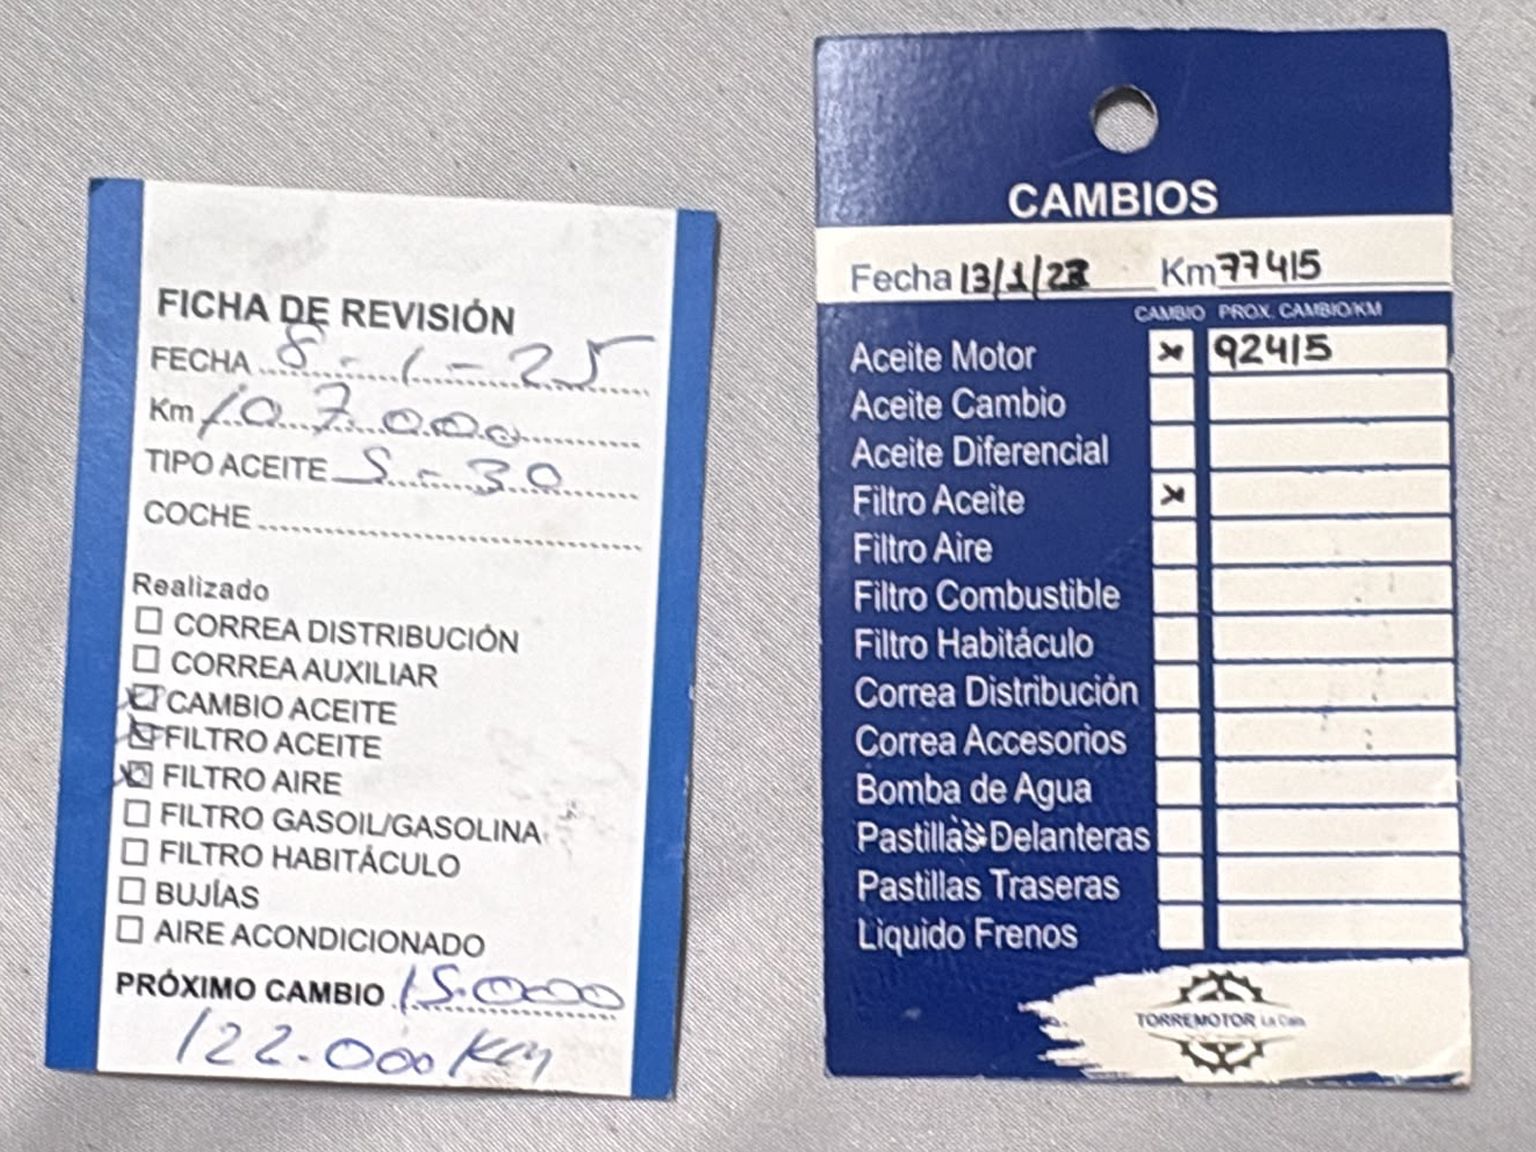 FICHA DE REVISIÓN
FECHA 8-1-25
Km 107.000
TIPO ACEITE 5-30
COCHE
Realizado
CORREA DISTRIBUCIÓN
CORREA AUXILIAR
CAMBIO ACEITE
FILTRO ACEITE
FILTRO AIRE
FILTRO GASOIL/GASOLINA
FILTRO HABITÁCULO
BUJÍAS
AIRE ACONDICIONADO
PRÓXIMO CAMBIO 15.000
122.000 Km
CAMBIOS
Fecha 13/1/23 Km 77415
CAMBIO PROX. CAMBIO/KM
Aceite Motor x 92415
Aceite Cambio
Aceite Diferencial
Filtro Aceite x
Filtro Aire
Filtro Combustible
Filtro Habitáculo
Correa Distribución
Correa Accesorios
Bomba de Agua
Pastillas Delanteras
Pastillas Traseras
Liquido Frenos
TORREMOTOR La Cala